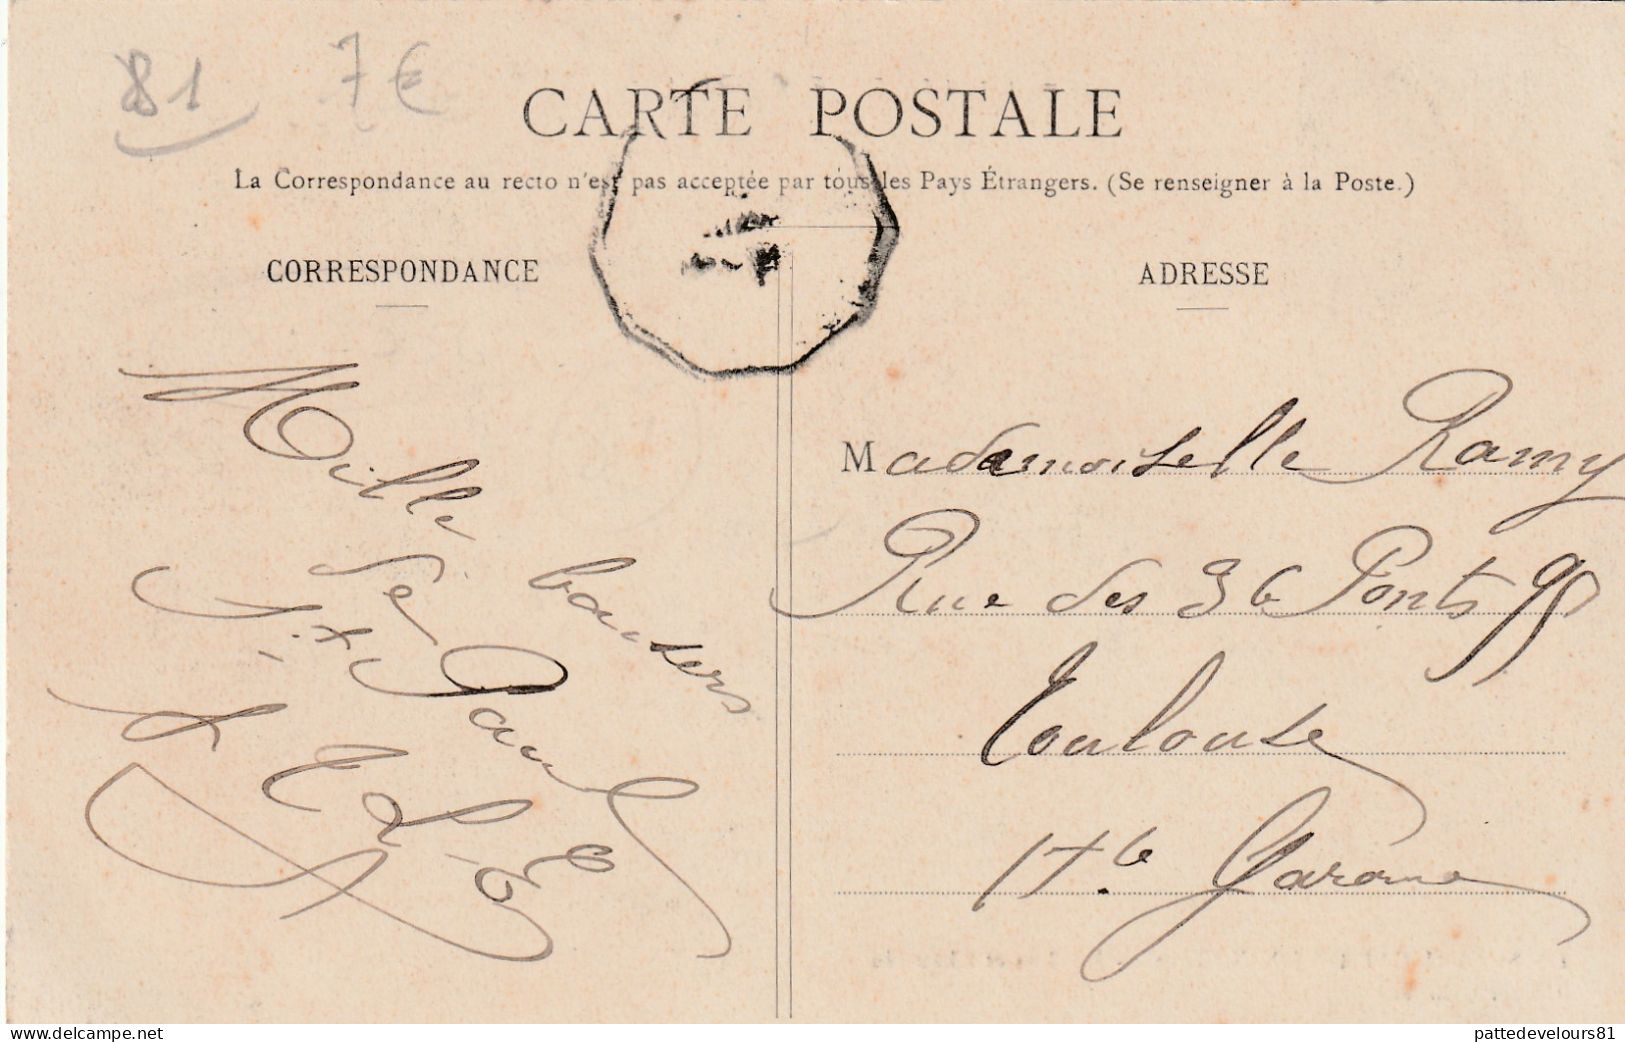 81 7€
CARTE POSTALE
La Correspondance au recto n'est pas acceptée par tous les Pays Étrangers. (Se renseigner à la Poste.)
CORRESPONDANCE
Mille baisers
de
St Paul
ADRESSE
Mademoiselle Ramy
Rue des 36 Ponts 95
Toulouse
Hte Garonne
www.delcampe.net
pattedevelours81